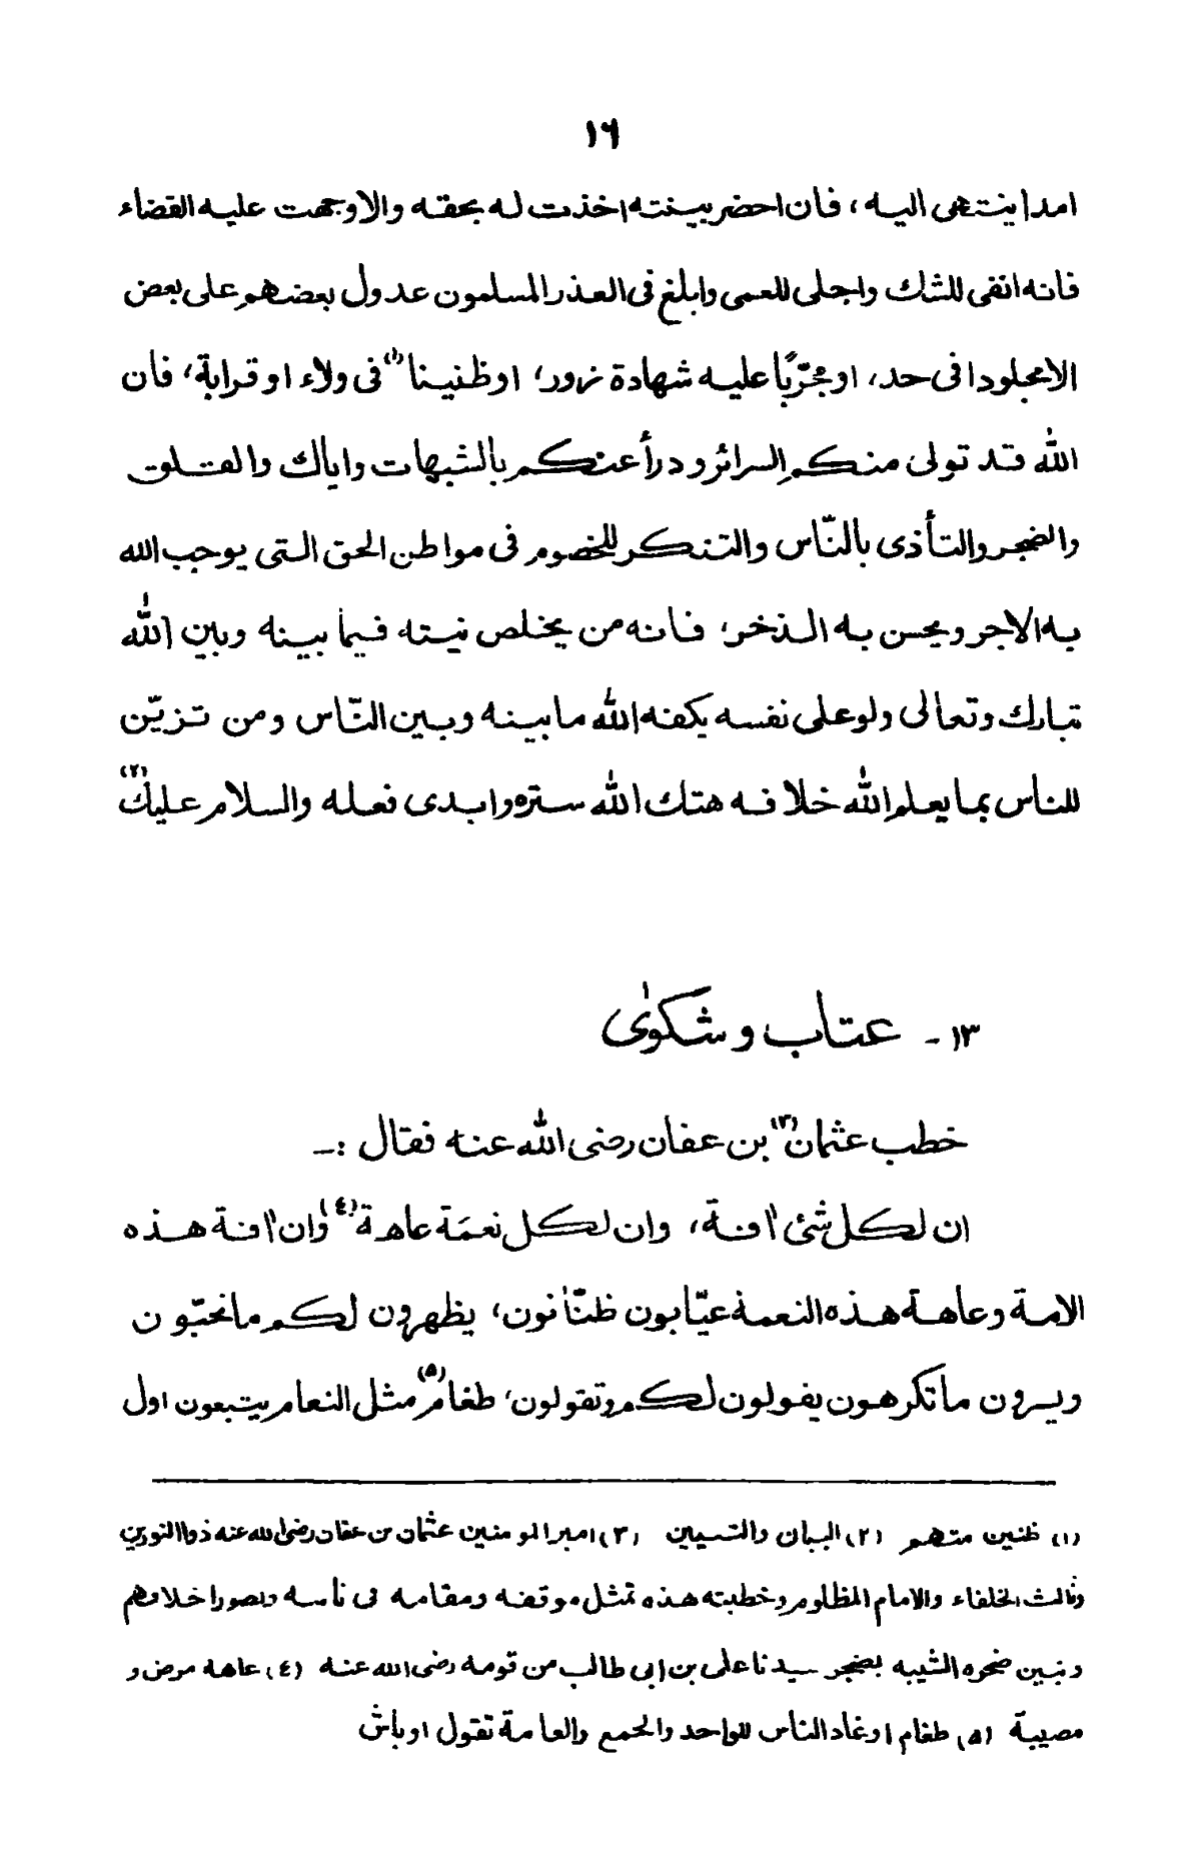 ١٦
امدا ينتهى اليه ، فان احضر بينته اخذت له بحقه والا وجهت عليه القضاء
فانه انقى للشك واجلى للعمى وابلغ فى العذر المسلمون عدول بعضهم على بعض
الا مجلودا فى حد، او مجرّبًا عليه شهادة زور، او ظنينا (١) فى ولاء او قرابة، فان
الله قد تولى منكم السرائر ودرأ عنكم بالشبهات واياك والقلق
والضجر والتأذى بالنّاس والتنكر للخصوم فى مواطن الحق التى يوجب الله
به الاجر ويحسن به الذخر، فانه من يخلص نيته فيما بينه وبين الله
تبارك وتعالى ولو على نفسه يكفه الله ما بينه وبين النّاس ومن تزيّن
للناس بما يعلم الله خلافه هتك الله ستره وابدى فعله والسلام عليك (٢)
١٣ - عتاب وشكوىٰ
خطب عثمان (٣) بن عفان رضى الله عنه فقال :-
ان لكل شئ اٰفة، وان لكل نعمَة عاهة (٤) وان اٰفة هذه
الامة وعاهة هذه النعمة عيّابون ظنّانون، يظهرون لكم ما تحبّون
ويسرون ما تكرهون يقولون لكم وتقولون، طغام (٥) مثل النعام يتبعون اول
(١) ظنين متهم (٢) البيان والتبيين (٣) امير المومنين عثمان بن عفان رضى الله عنه ذو النورين
وثالث الخلفاء والامام المظلوم وخطبته هذه تمثل موقفه ومقامه فى ناسه وتصور اخلاقهم
وتبين ضجره الشبيه بضجر سيدنا على بن ابى طالب من قومه رضى الله عنه (٤) عاهة مرض و
مصيبة (٥) طغام اوغاد الناس للواحد والجمع والعامة تقول اوباش